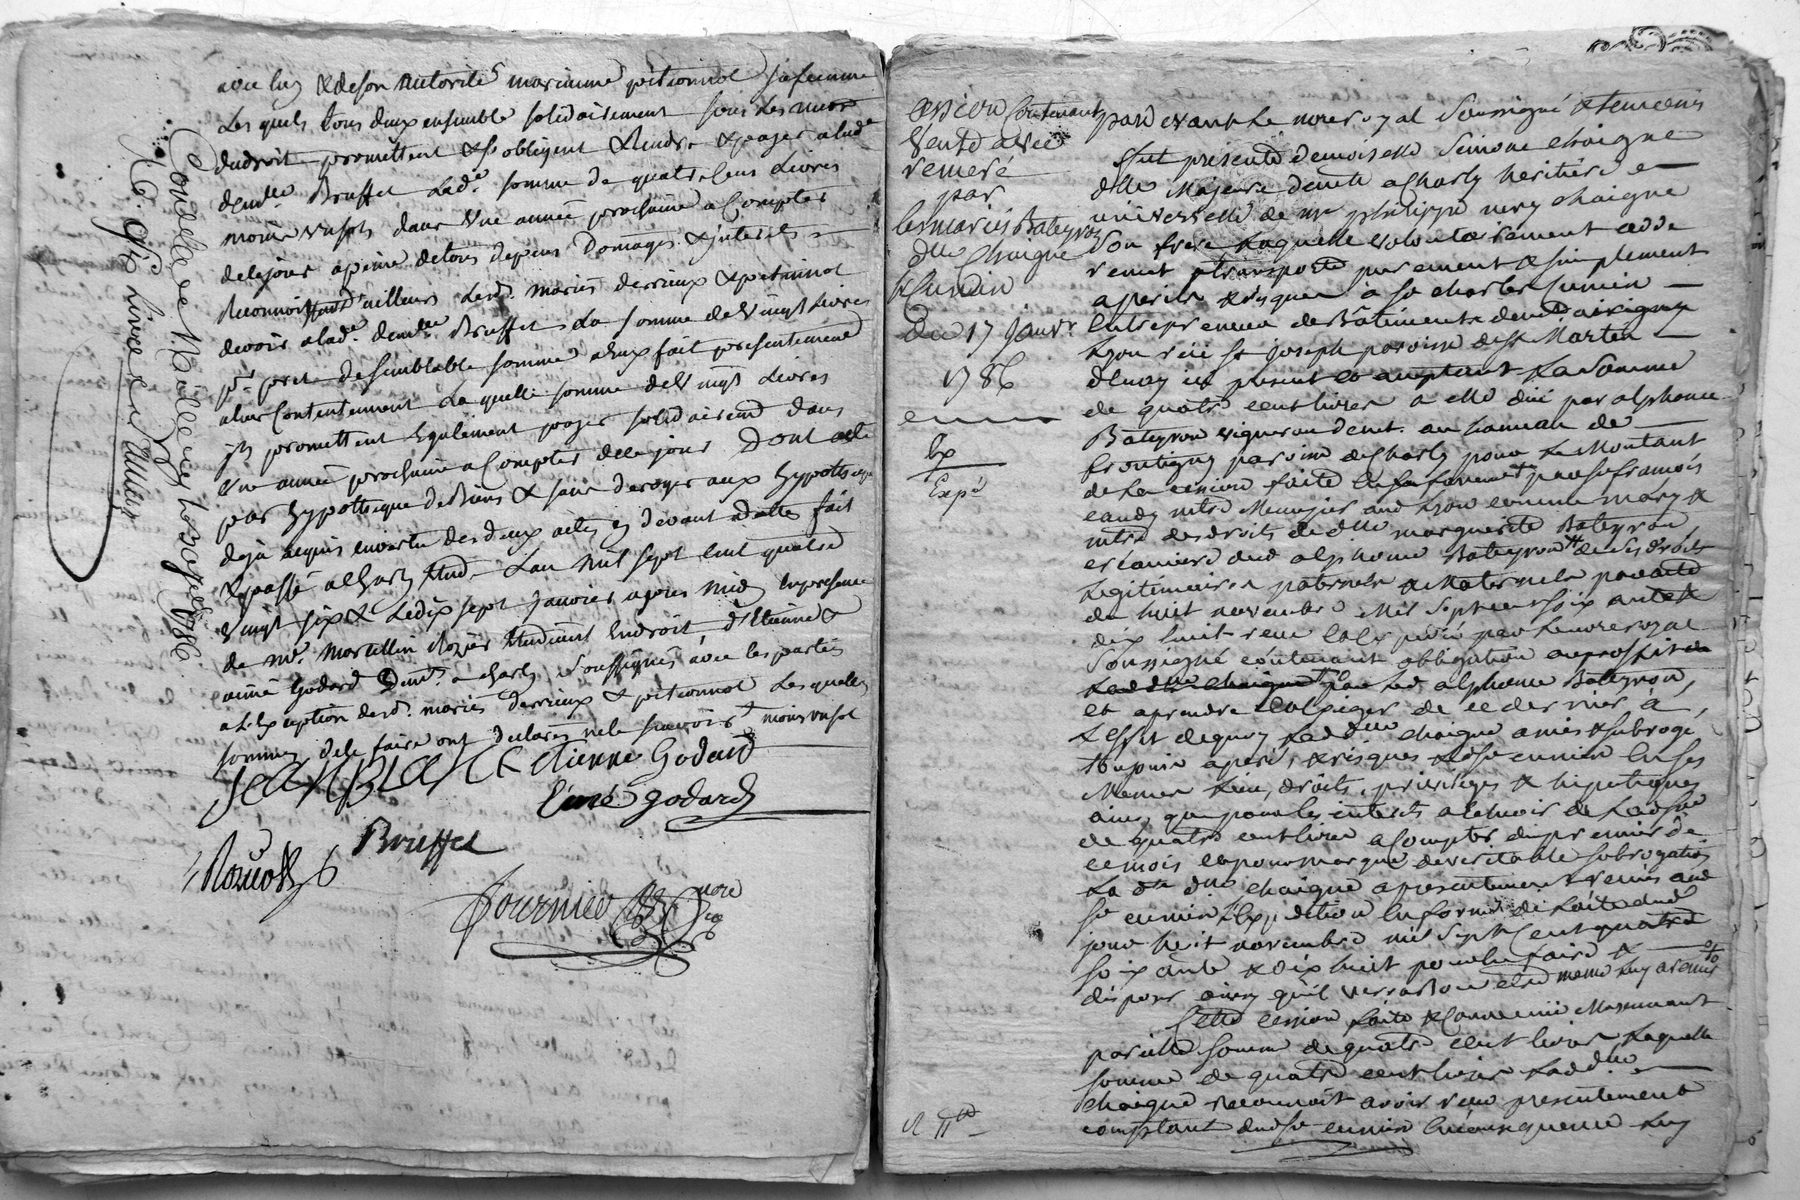 avec luy & de son autorité marianne petionnol sa femme
Les quels tous deux ensemble solidairement sous Les
du droit promettent & s'obligent Rendre & payer a lad.e
dem.lle Bruffet Lad.e somme de quatre Cens Livres
dans Une année prochaine a Compter
de ce jour a peine de tous depens Domages & jnterets
Reconnoissant d'ailleurs Lesd. mariés derrieux & petionnol
devoir a lad.e dem.lle Bruffet La somme de Vingt Livres
pr. pret de semblable somme a Eux fait presentement
a leur Contentement La quelle somme de Vingt Livres
promettent Egalement payer solidairemt dans
Une année prochaine a Compter de ce jour Dont acte
par hypotheque de Biens & sans deroger aux hypotheque
deja acquis en vertu des deux actes cy devant dattés fait
& passé a Charly Etude L'an mil sept Cent quatre
Vingt six & Le dix sept janvier apres midy En presence
de mr. Marcellin Rozier Etudiant En droit, d'Etienne &
aimé Godard Dmt. a Charly Soussignés avec les parties
a L'Exception desd. mariés derrieux & petionnol Les quels
sommes de le faire ont declaré ne le savoir
jean Blanc Etienne Godard
Eimé godard
Bruffet
Fournier nore
Controllé a Millery Le 1786
cession Contenant
Vente avec
remeré
par
les mariés Bateyron
dlle Chaigne
Cumin
Du 17 janvr
1786
Ex
Expé
pardevant Le nore royal Soussigné & temoins
fut presente demoiselle Simone Chaigne
fille Majeure demte a Charly heritiére
universelle de mre philippe rémy Chaigne
Son frere Laquelle volontairement cede
remet & transporte purement & simplement
a peril & risques à sr Charles Cumin
Entrepreneur de Bâtiments demt
Lyon rüe st joseph paroisse de st Martin
d'Enay icy present & acceptant La Somme
de quatre cent livres a elle düe par alphonce
Bateyron vigneron demt. au hameau de
frontigny paroisse de Charly pour Le Montant
de La cession faite En sa faveur par sr françois
me Menuisier aud Lyon comme mary &
mtre des droits de dlle marguerite Bateyron
créancière dud alphonce Bateyron de ses droits
Legitimaires paternels & Maternels par acte
du huit novembre Mil Sept cent soix ante &
dix huit reçu Par Le nore royal
Soussigné contenant obligation au proffit de
Lad dlle Chaigne par Led alphonce Bateyron,
et a prendre & Exiger de ce dernier, à
L'effet de quoy Lad dlle Chaigne a mis & subrogé
toujours a peril & risques Led sr Cumin En ses
Memes Lieu, droits, privileges & hipoteques
ainsy que pour les interets a Echoir de Lad somme
de quatre cent livres a Compter du premier de
ce mois Et pour marque de veritable subrogation
La dte dlle Chaigne a presentement remis aud
sr Cumin L'Expedition En forme de L'acte dud
jour huit novembre mil sept Cent
soix ante & dix huit pour En faire &
disposer ainsy qu'il verra Bon etre
Cette cession faite & Convenüe Moyennant
pareille somme de quatre cent livres Laquelle
somme de quatre cent livres Lad dlle
Chaigne Reconnoit avoir reçu presentement
comptant dud sr Cumin En conséquence Luy